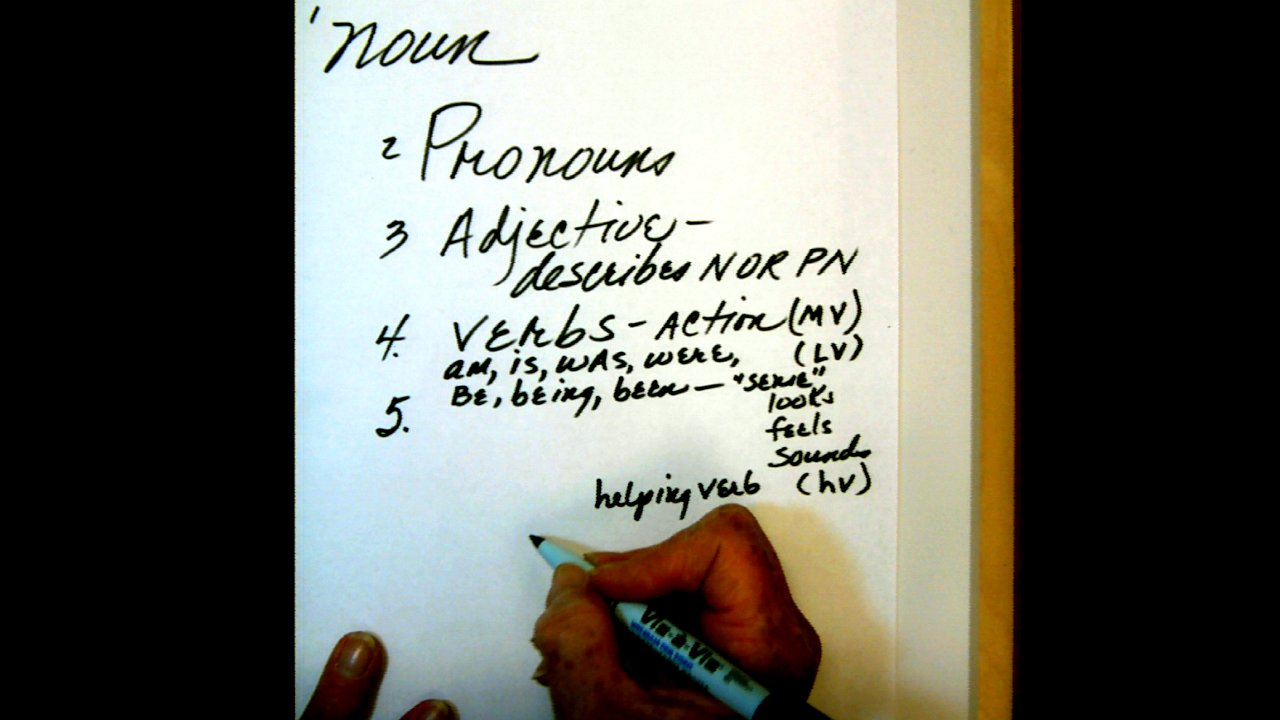 1 noun
2 Pronouns
3 Adjective -
describes N OR PN
4. VERbS - ACTion (MV)
am, is, wAs, wERE, (LV)
BE, bEing, bEEn — "sense"
looks
feels
sounds
5.
helping vERb (hv)
Vis-à-Vis